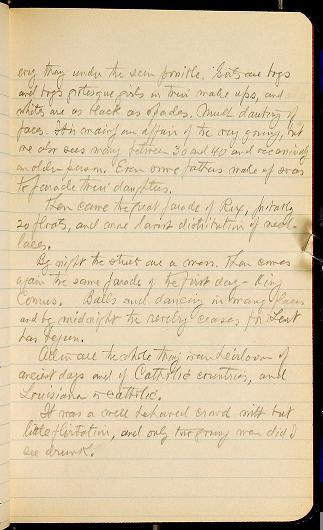 every thing under the sun possible. Girls are boys
and boys grotesque girls in their make ups, and
whites are as black as spades. Much daubing of
faces. It is mainly an affair of the very young, but
one also sees many between 30 and 40 and occasionally
an older person. Even some fathers made up so as
to parade their daughters.
Then came the great parade of Rex, probably
20 floats, and more lavish distribution of neck-
laces.
By night the streets are a mess. Then comes
again the same parade of the first day - King
Comus. Balls and dancing in many places
and by midnight the revelry ceases for Lent
has begun.
All in all the whole thing is an heirloom of
ancient days and of Catholic countries, and
Louisiana is Catholic.
It was a well behaved crowd with but
little flirtation, and only two young men did I
see drunk.